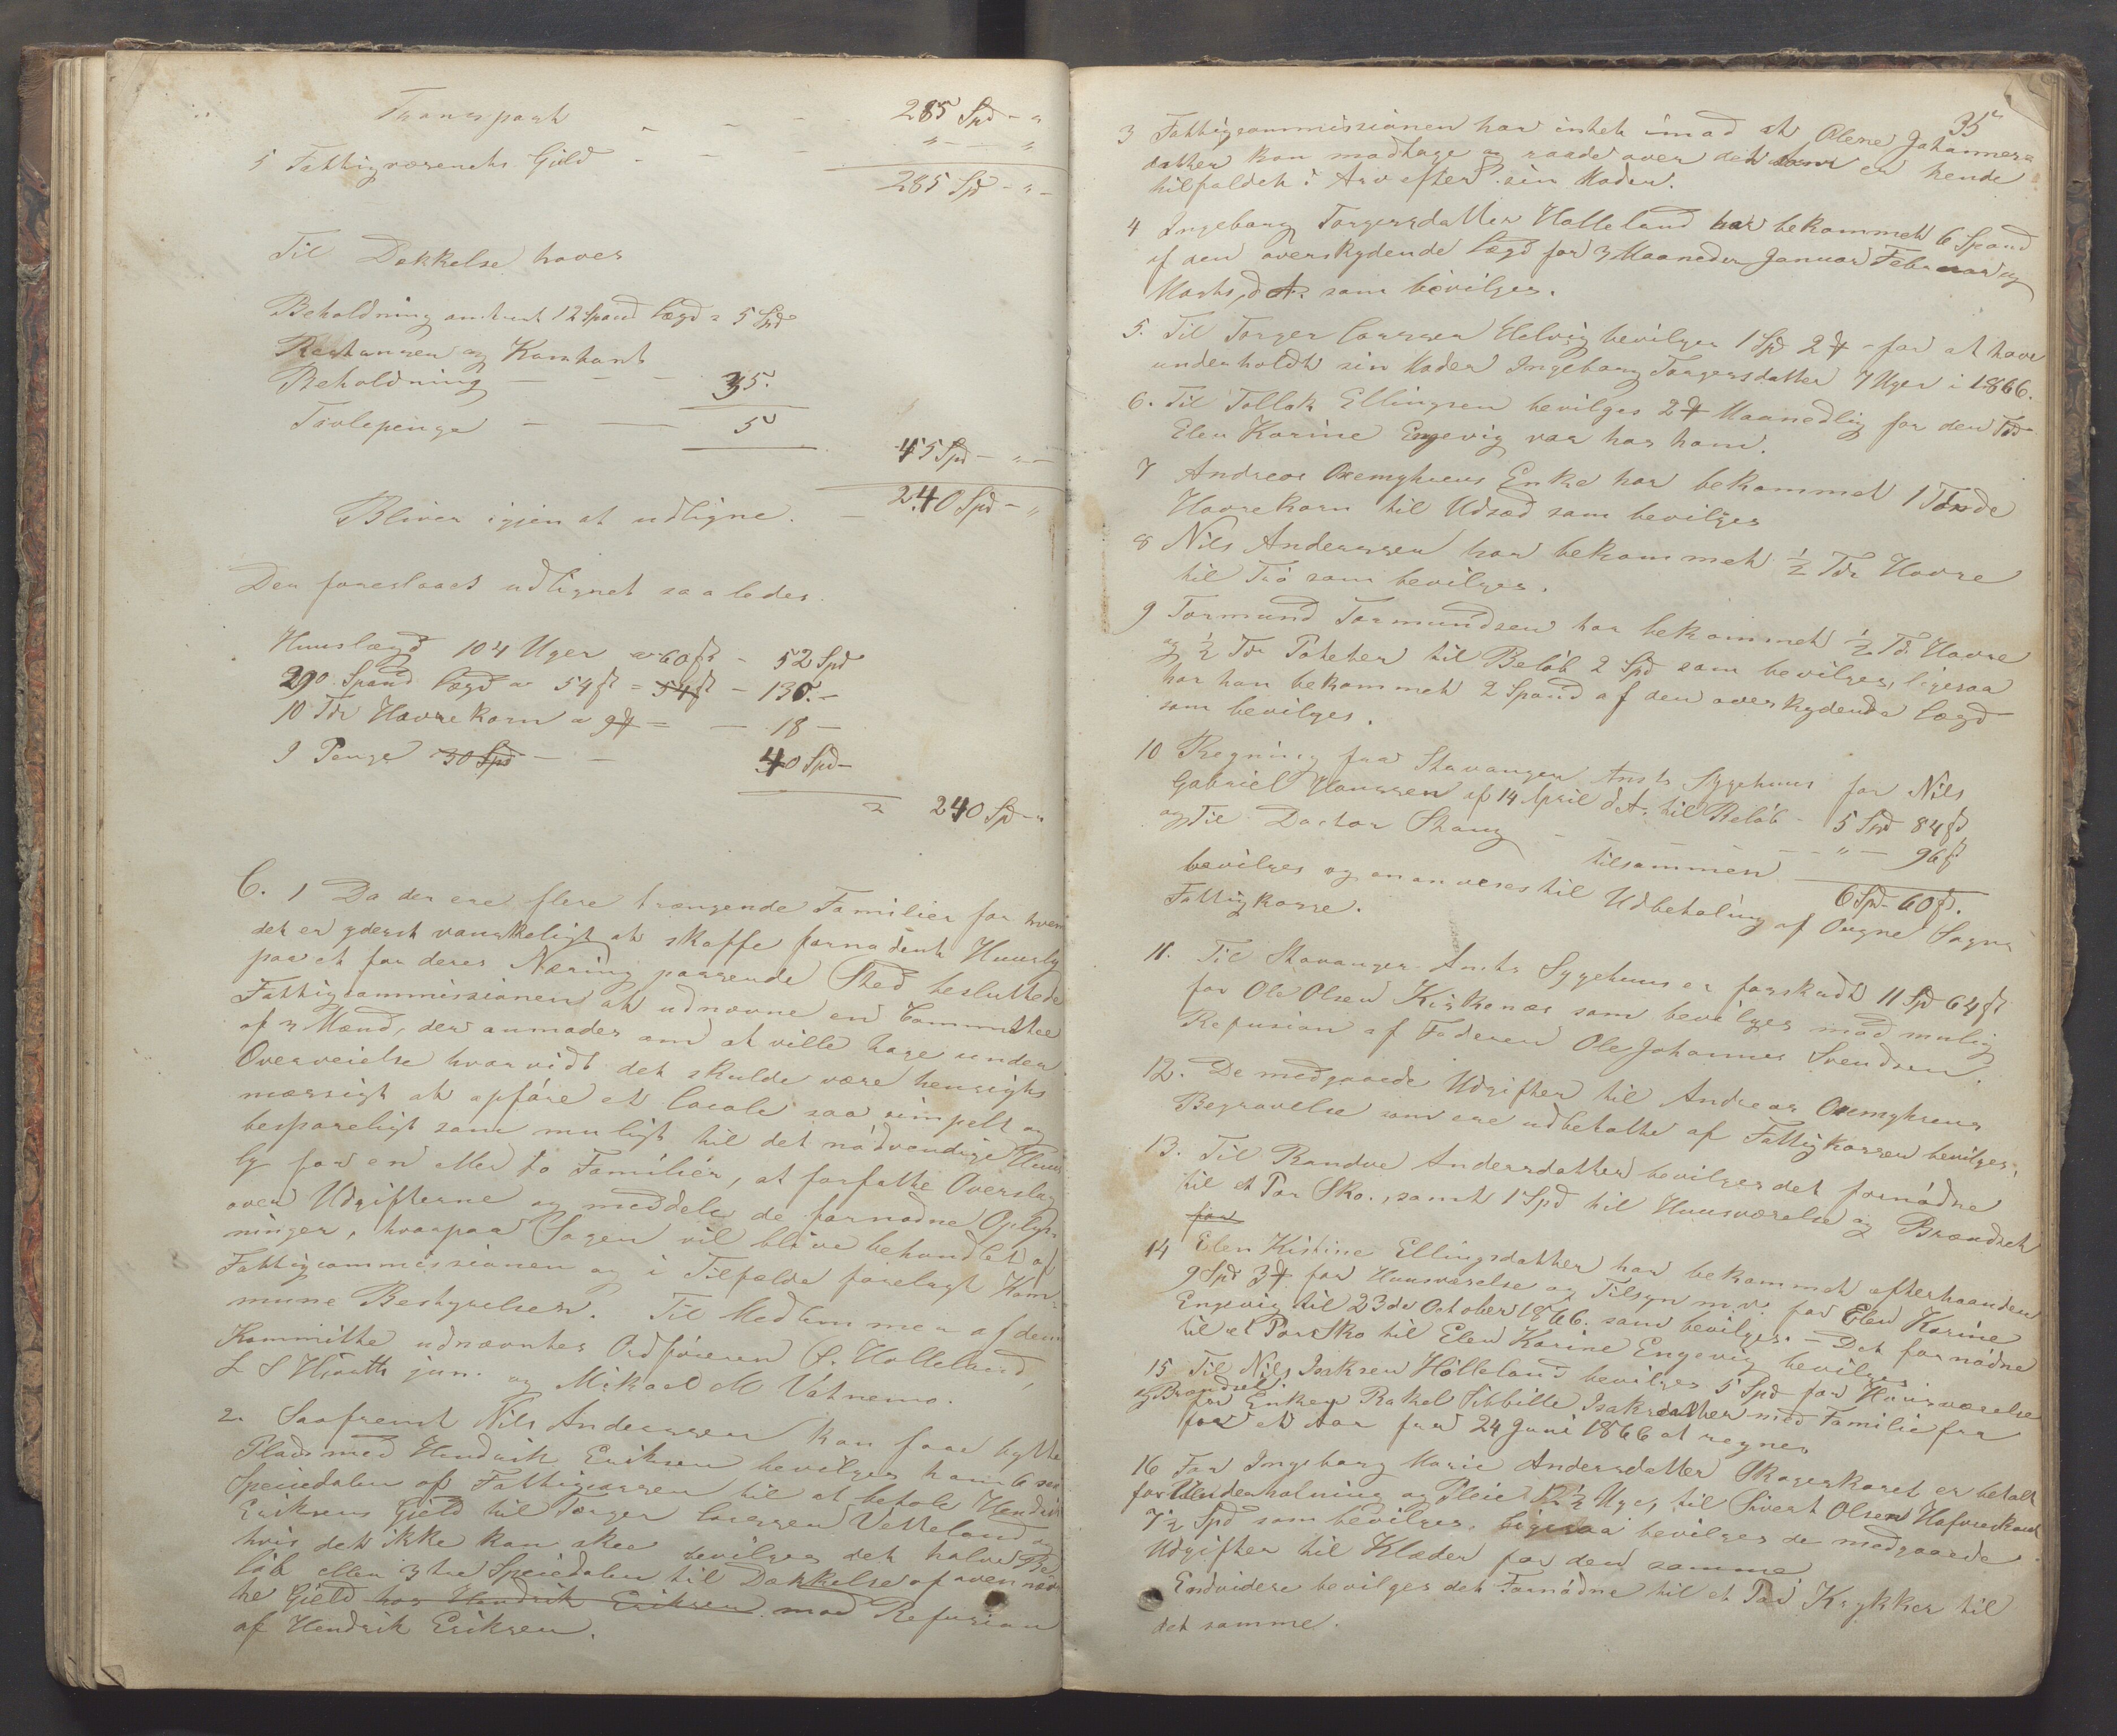 Transport - - - 285 Spd - "
5 Fattigvæsenets Gjeld - - - " - - "
285 Spd - " -
Til Dækkelse haves
Beholdning omtrent 12 Spand Lægd = 5 Spd
Restancen og Kontant
Beholdning - - - 35.
Tavlepenge - - 5
45 Spd - " -
Bliver igjen at udligne. - 240 Spd - "
Der foreslaaes udlignet saaledes.
Huuslægd 104 Uger a 60 ß - 52 Spd
290 Spand Lægd a 54 ß = 54 ß - 130. -
10 Tdr Havrekorn a 9 # = - 18 -
I Penge 30 Spd - - 40 Spd -
= 240 Spd - "
C. 1 Da der ere flere trængende Familier for hvem
det er yderst vanskeligt at skaffe fornødent Huusly
paa et for deres Næring passende Sted besluttede
Fattigcommissionen at udnævne en Committee
af 3 Mænd, der anmodes om at ville tage under
Overveielse hvorvidt det skulde være hensigts
mæssigt at opføre et Locale saa simpelt og
besparligt som muligt til det nødvendige Huus
ly for en eller to Familier, at forfatte Overslag
over Udgifterne og meddele de fornødne Oplys-
ninger, hvorpaa Sagen vil blive behandlet af
Fattigcommissionen og i Tilfælde forelagt Kom-
mune Bestyrelsen. Til Medlemmer af den
Kommitte udnævntes Ordføreren S. Holleland,
L S Hirath jun. og Mikael M Vatnemo.
2. Saafremt Nils Anderssen kan faae bytte
Plads med Hendrik Eriksen bevilges ham 6 sex
Speciedaler af Fattigcassen til at betale Hendrik
Eriksens Gjeld til Torger Larssen Vetteland og
hvis det ikke kan skee bevilges det halve Be-
løb eller 3 tre Speciedaler til Dækkelse af ovennævn
te Gjeld hos Hendrik Eriksen mod Refusion
af Hendrik Eriksen.
35
3 Fattigcommissionen har intet imod at Olene Johannes-
datter kan modtage og raade over det som er hende
tilfaldet i Arv efter sin Moder.
4 Ingeborg Torgersdatter Holleland har bekommet 6 Spand
af den overskydende Lægd for 3 Maaneder Januar Februar og
Marts, d A. som bevilges.
5. Til Torger Larssen Helvig bevilges 1 Spd 2 # - for at have
underholdt sin Moder Ingeborg Torgersdatter 7 Uger i 1866.
6. Til Tollak Ellingsen bevilges 2 # Maanedlig for den Tid
Elen Karine Engevig var hos ham.
7 Andreas Oxemyhrens Enke har bekommet 1 Tønde
Havrekorn til Udsæd som bevilges
8 Nils Anderssen har bekommet ½ Tdr Havre
til Frø som bevilges.
9 Tormund Tormundsen har bekommet ½ Td. Havre
og ½ Tdr Poteter til Beløb 2 Spd som bevilges, ligesaa
har han bekommet 2 Spand af den overskydende Lægd
som bevilges.
10 Regning fra Stavanger Amts Sygehuus for Nils
Gabriel Hanssen af 14 April d A. til Beløb - 5 Spd 84 ß
og Til Doctor Shang - - - " - 96 ß
tilsammen 6 Spd 60 ß.
bevilges og anvises til Udbetaling af Ougne Sogns
Fattigkasse.
11. Til Stavanger Amts Sygehuus er forskudt 11 Spd 64 ß
for Ole Olsen Kirkenæs som bevilges mod mulig
Refusion af Faderen Ole Johannes Svendsen.
12. De medgaaede Udgifter til Andreas Oxemyhrens
Begravelse som ere udbetalte af Fattigkassen bevilges.
13. Til Randve Andersdatter bevilges det fornødne
til et Par Sko, samt 1 Spd til Huusværelse og Brændsel
for
14 Elen Kistine Ellingsdatter har bekommet efterhaanden
9 Spd 3 # for Huusværelse og Tilsyn m.v. for Elen Karine
Engevig til 23de October 1866. som bevilges. - Det fornødne
til et Par Sko til Elen Karine Engevig bevilges
15 Til Nils Isaksen Hølleland bevilges 5 Spd for Huusværelse
og Brændsel for Enken Rakel Sibbille Isaksdatter med Familie fra
for et Aar fra 24 Juni 1866 at regne.
16 For Ingeborg Marie Andersdatter Skogeskaret er betalt
for Underholdning og Pleie 12½ Uge, til Sivert Olsen Hafverkand
7½ Spd som bevilges. Ligesaa bevilges de medgaaede
Udgifter til Klæder for den samme
Endvidere bevilges det Fornødne til et Par Krykker til
det samme.